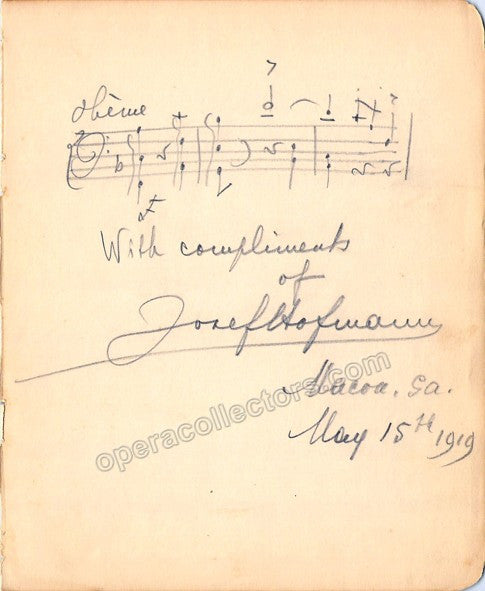 Thème
With compliments
of
Josef Hofmann
Macon, Ga.
May 15th 1919
operacollectors.com